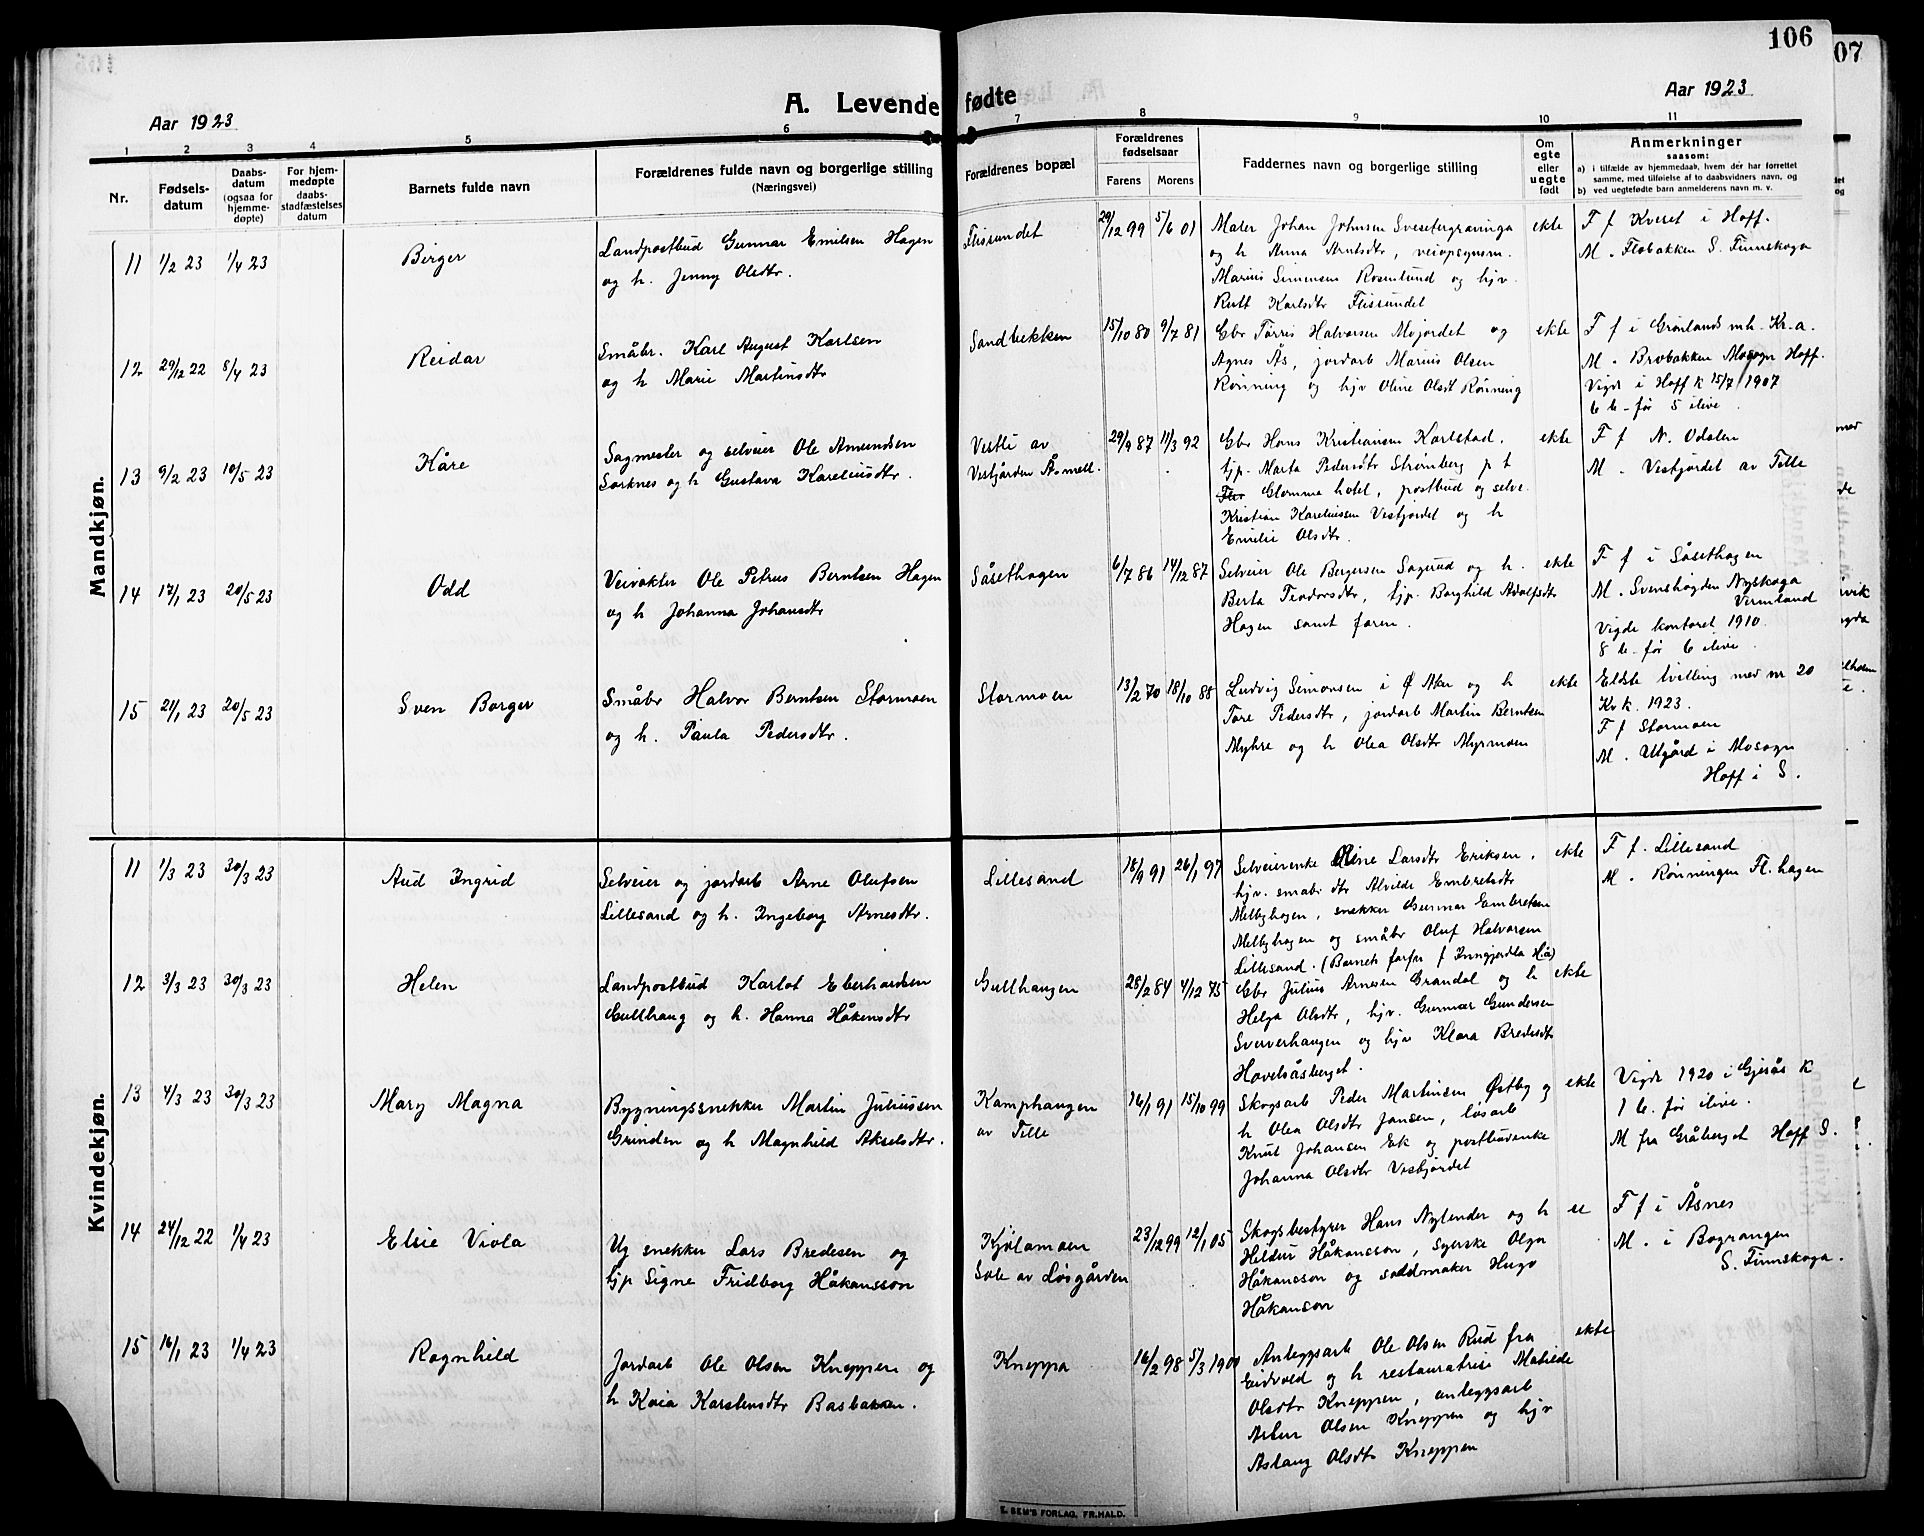 106
07
A. Levende fødte
Aar 1923
Aar 1923
1 2 3 4 5 6 7 8 9 10 11
Nr.
Fødsels-
datum
Daabs-
datum
(ogsaa for
hjemme-
døpte)
For hjem-
medøpte
daabs-
stadfæstelses
datum
Barnets fulde navn
Forældrenes fulde navn og borgerlige stilling
(Næringsvei)
Forældrenes bopæl
Forældrenes
fødselsaar
Farens Morens
Faddernes navn og borgerlige stilling
Om
egte
eller
uegte
født
Anmerkninger
saasom:
a) i tilfælde av hjemmedaab, hvem der har forrettet
samme, med tilføielse af to daabsvidners navn, og
b) ved uegtefødte barn anmelderens navn m. v.
Mandkjøn.
11 1/2 23 1/4 23 Birger
Landpostbud Gunnar Emilsen Hagen
og h. Jenny Olsdtr.
Flisundet
29/12 99 5/6 01
Maler Johan Johnsen Svesetergraninga
og h Anna Arntsdtr, veiopsynsm.
Marius Simensen Rosenlund og hjv.
Rutt Karlsdtr Flisundet
ekte
F f Kveset i Hoff.
M. Flobakken S. Finnskoga
12 29/12 22 8/4 23 Reidar
Småbr. Karl August Karlsen
og h Marie Martinsdtr
Sandbekken
15/10 80 9/7 81
Gbr Tørris Halvorsen Mojordet og
Agnes Ås, jordarb Marius Olsen
Rønning og hjv Oline Olsdt Rønning
ekte
F f i Grønlands mh. Kr.a.
M. Brobakken Mosogn Hoff.
Vigde i Hoff k 15/7 1907
6 b. før 5 ilive.
13 9/2 23 10/5 23 Kåre
Sagmester og selveier Ole Amundsen
Sorknes og h Gustava Kareliusdtr.
Vestli av
Vestgården Åsmell.
29/9 87 11/3 92
Gbr Hans Kristiansen Karlstad,
tjp. Marta Pedersdtr Strømberg p t
Glomma hotel, postbud og selve.
Kristian Kareliussen Vestjordet og h
Emilie Olsdtr.
ekte
F f N. Odalen
M. Vestjordet av Telle
14 17/1 23 20/5 23 Odd
Veivokter Ole Petrus Berntsen Hagen
og h Johanna Johansdtr
Såsethagen
6/7 86 14/12 87
Selveier Ole Bergersen Sagrud og h.
Berta Teodorsdtr, tjp. Borghild Adolfsdtr
Hagen samt faren.
ekte
F f i Såsethagen
M. Svenshögden Nyskoga
Vermland
Vigde kontoret 1910.
8 b. før 6 ilive.
15 21/1 23 20/5 23 Sven Borger
Småbr Halvor Berntsen Stormoen
og h. Paula Pedersdtr.
Stormoen
13/2 70 18/10 88
Ludvig Simonsen i Ø Aker og h
Tore Pedersdtr, jordarb Martin Berntsen
Myhre og h Olea Olsdtr Myrmoen
ekte
Eldste tvilling med nr 20
Kv k. 1923.
F f Stormoen
M. Utgård i Mosogn
Hoff i S.
Kvindekjøn.
11 1/3 23 30/3 23 Aud Ingrid
Selveier og jordarb Arne Olufsen
Lillesand og h. Ingeborg Arnesdtr.
Lillesand
18/9 91 26/1 97
Selveierenke Oline Larsdtr Eriksen,
hjv. småbr dtr Alvilde Embretsdtr
Melbyhagen, snekker Gunnar Embretsen
Melbyhagen og småbr Oluf Halvorsen
Lillesand. (Barnets farfar f Inngjerdla Há)
ekte
F f. Lillesand
M. Rønningen Fl. hagen
12 3/3 23 30/3 23 Helen
Landpostbud Karlot Eberhardsen
Gulthaug og h. Hanna Håkensdtr
Gulthaugen
28/2 84 4/12 75
Gbr Julius Arnesen Grandal og h
Helga Olsdtr, hjv. Gunnar Gundersen
Sververhaugen og hjv Klara Bredesdtr
Havelsåsberget.
ekte
13 4/3 23 30/3 23 Mary Magna
Bygningssnekker Martin Juliussen
Grinden og h Magnhild Akselsdtr.
Kamphaugen
av Telle
16/1 91 15/10 99
Skogsarb Peder Martinsen Østby og
h Olea Olsdtr Jansen, løsarb
Knut Johansen Ek og postbudenke
Johanna Olsdtr Vestjordet
ekte
Vigde 1920 i Gjesås K
1 b. før ilive.
M fra Gråberget Hoff S.
14 24/12 22 1/4 23 Elsie Viola
Ug snekker Lars Bredesen og
tjp Signe Fridborg Håkansson
Kjølamoen
Sole av Løsgården
23/12 99 12/1 05
Skogsbestyrer Hans Nylender og h
Heldur Håkansson, syerske Olga
Håkansson og saldmaker Hugo
Håkanson
ue
F f i Åsnes
M. i Bograngen
S. Finnskoga.
15 16/1 23 1/4 23 Ragnhild
Jordarb Ole Olsen Kneppen og
h Kaia Karstensdtr Basbakken.
Kneppa
16/2 98 5/3 1900
Anleggsarb Ole Olsen Rud fra
Eidvold og h restauratrise Matilde
Olsdtr Kneppen, anleggsarb
Artur Olsen Kneppen og hjv
Aslaug Olsdtr Kneppen
ekte
E. SEM'S FORLAG, FR.HALD.